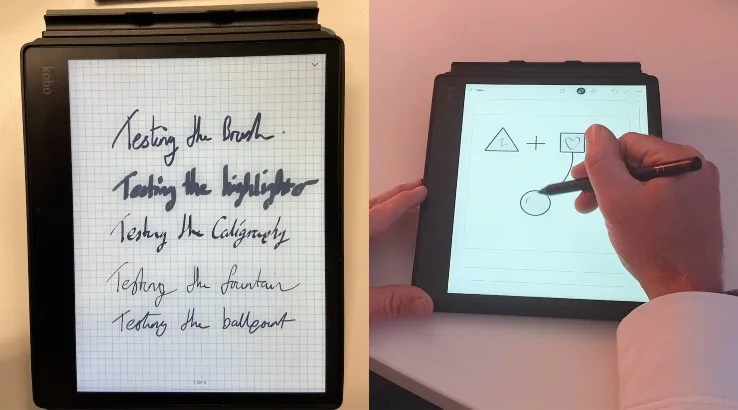 kobo
Testing the Brush.
Testing the highlighter
Testing the Caligraphy
Testing the fountain
Testing the ballpoint
1 OF 2